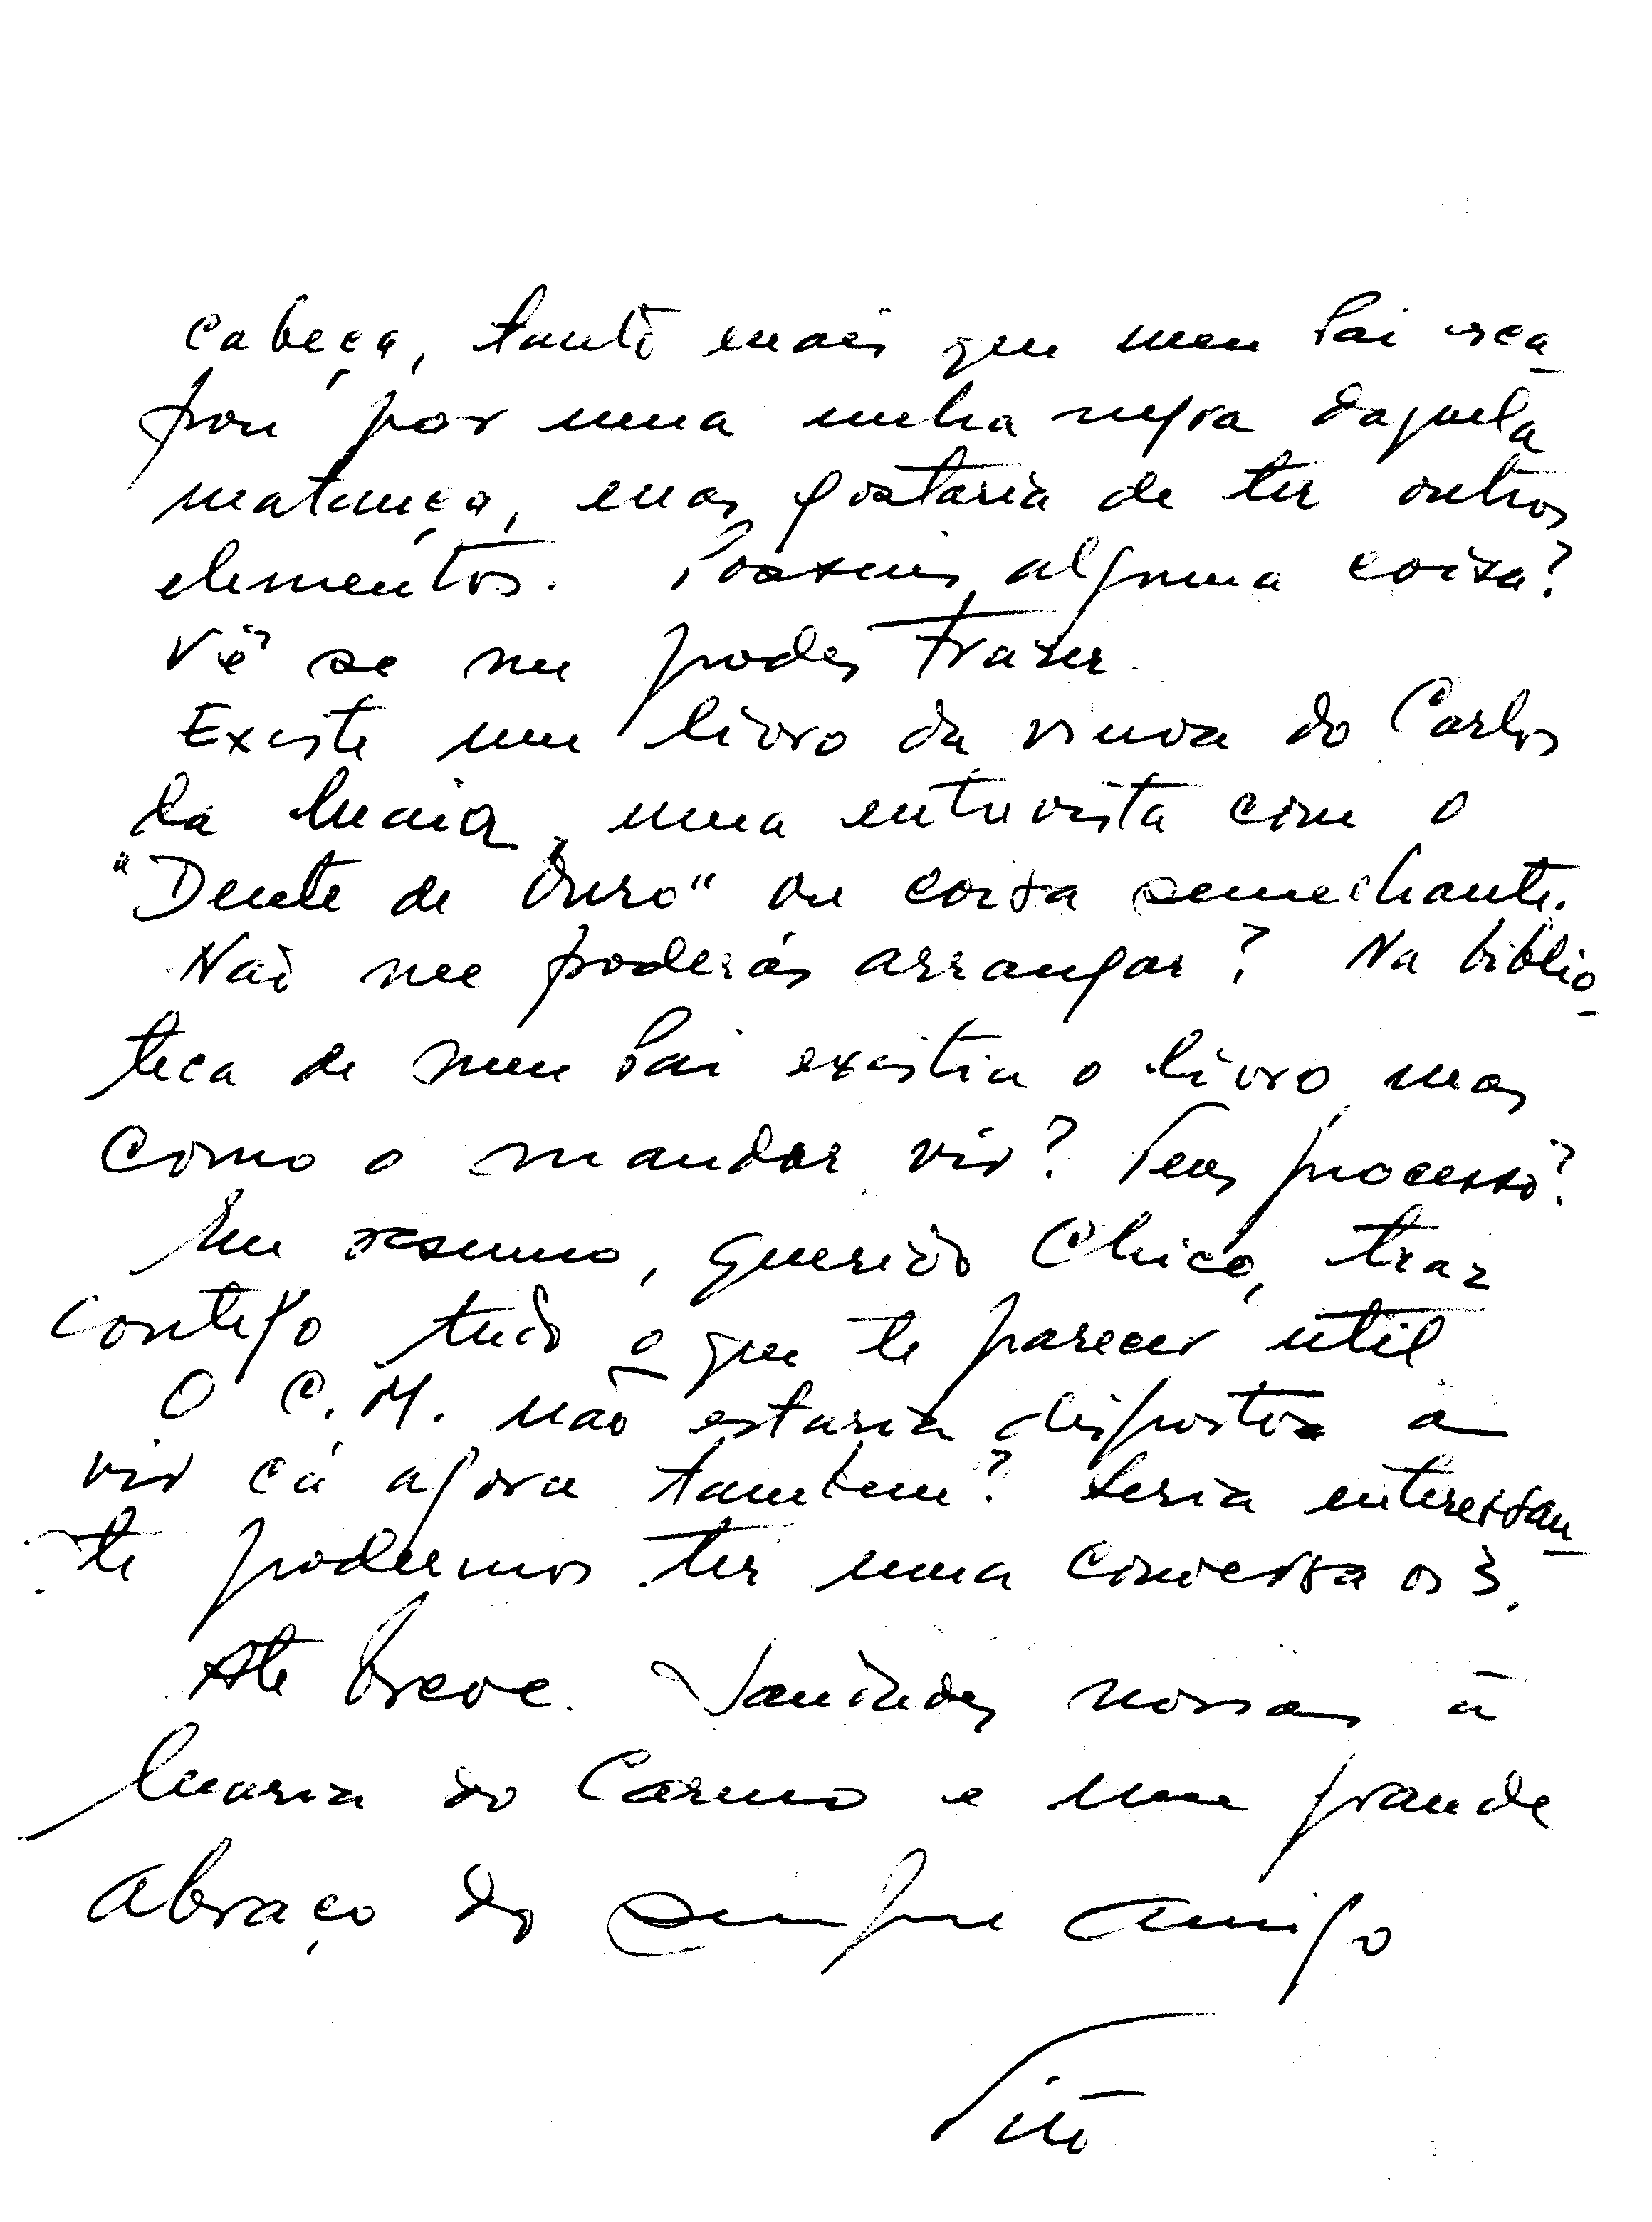 cabeça, tanto mais que meu Pai esca-
pou por uma unha negra daquela
matança, mas gostaria de ter outros
elementos. Possuis alguma coisa?
Vê se me podes trazer.
Existe um livro da viuva do Carlos
da Maia, uma entrevista com o
"Dente de Ouro" ou coisa semelhante.
Não me poderás arranjar? Na biblio-
teca de meu Pai existia o livro, mas
como o mandar vir? Teas processo?
Em resumo, querido Chico, traz
contigo tudo o que te parecer útil
O C. M. não estaria disposto a
vir cá agora tambem? Seria interessan-
te podermos ter uma conversa os 3.
Até breve. Saudades nossas à
Maria do Carmo e um grande
abraço do sempre amigo
Tito